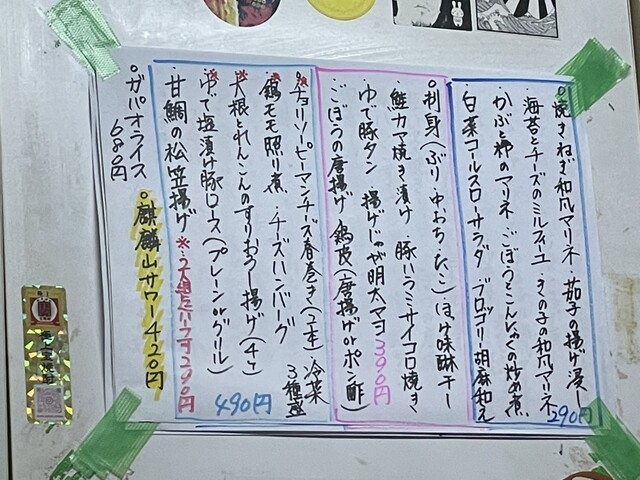 ○焼きねぎ和風マリネ・茄子の揚げ浸し
海苔とチーズのミルフィーユ・きのこの和風マリネ
・かぶと柿のマリネ・ごぼうとこんにゃくの炒め煮
・白菜コールスローサラダ・ブロッコリー胡麻和え
290円
○刺身(ぶり・中おち・たこ)ほっけ味醂干し
・鮭カマ焼き漬け・豚ハラミサイコロ焼き
・ゆで豚タン・揚げじゃが明太マヨ390円
・ごぼうの唐揚げ・鶏皮(唐揚げorポン酢)
※チョリソーピーマンチーズ春巻き(2本)冷菜3種盛
※鶏モモ照り煮・チーズハンバーグ
※大根とれんこんのすりおろし揚げ(4ヶ)
※ゆで塩漬け豚ロース(プレーンorグリル)
490円
・甘鯛の松笠揚げ
○ガパオライス
680円
○麒麟山サワー420円